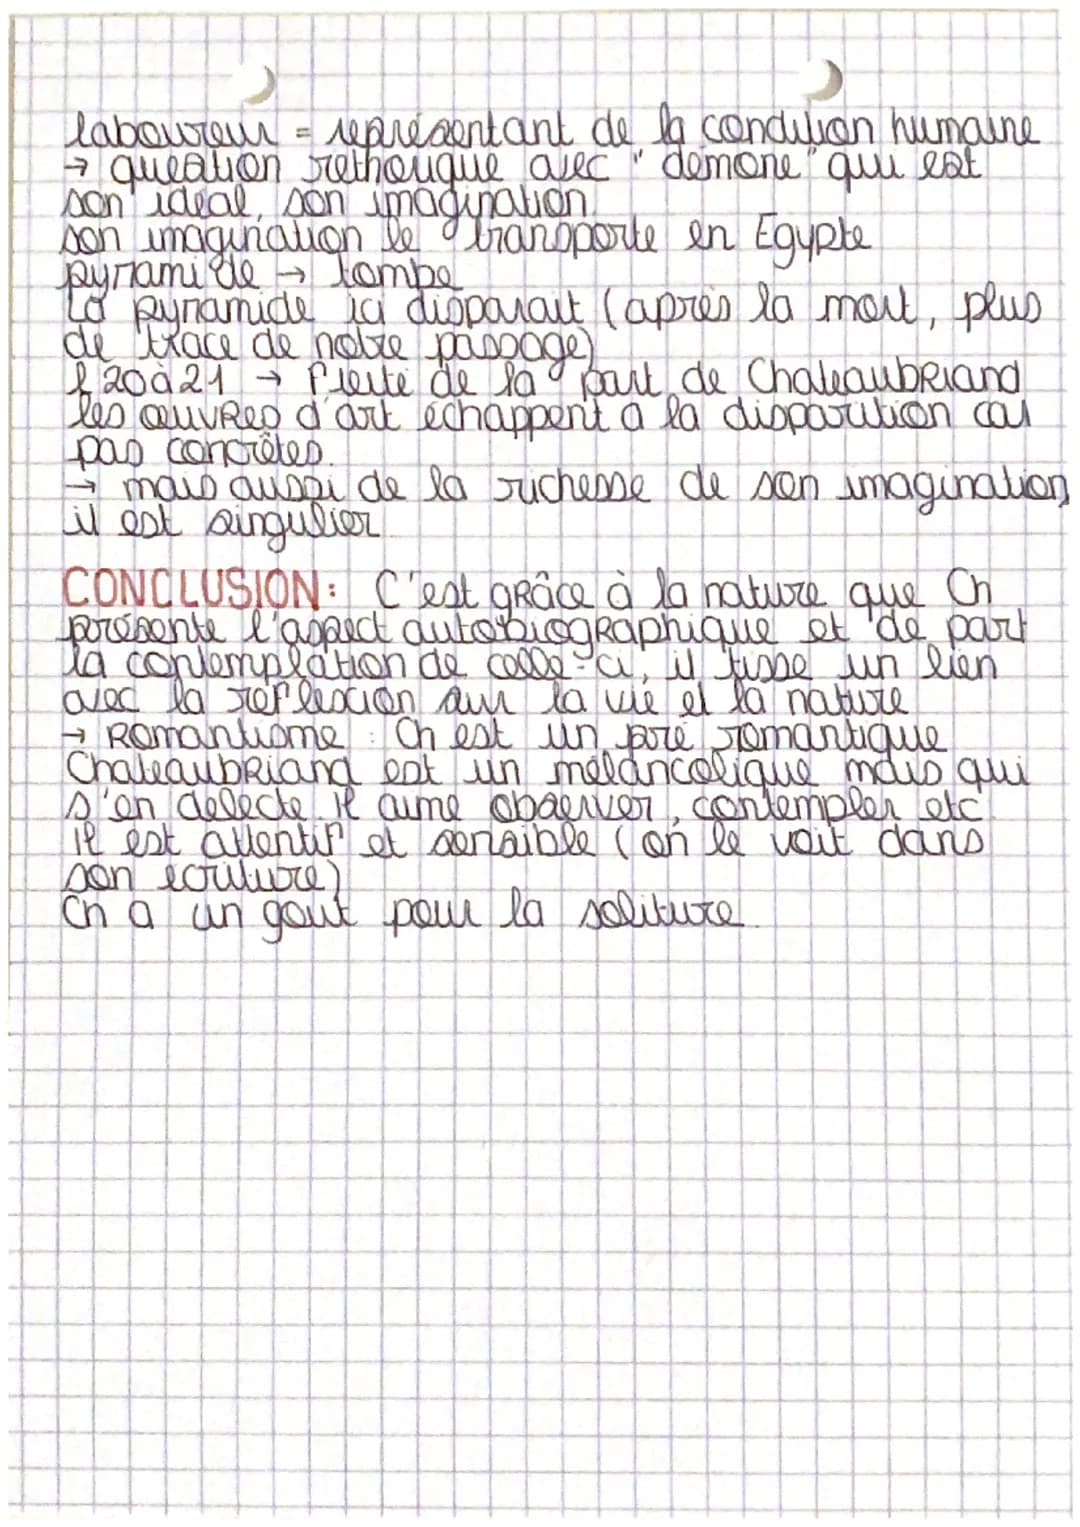 laboureur = représentant de la condition humaine
→ question rethorique avec "demone" qui est
son idéal, son imagination.
son imagination le transporte en Egypte
pyramide → tombe
La pyramide ici disparait (après la mort, plus
de trace de notre passage)
l 20 à 21 → fierté de la part de Chateaubriand
les œuvres d'art échappent à la disparition car
pas concrêtes.
→ mais aussi de la richesse de son imagination,
il est singulier.
CONCLUSION: C'est grâce à la nature que Ch
présente l'aspect autobiographique et de part
la contemplation de celle-ci, il tisse un lien
avec la réflexion sur la vie et la nature
→ Romantisme : Ch est un pré romantique
Chateaubriand est un mélancolique mais qui
s'en delecte. Il aime observer, contempler etc
il est attentif et sensible (on le voit dans
son ecriture)
Ch a un gout pour la soliture.